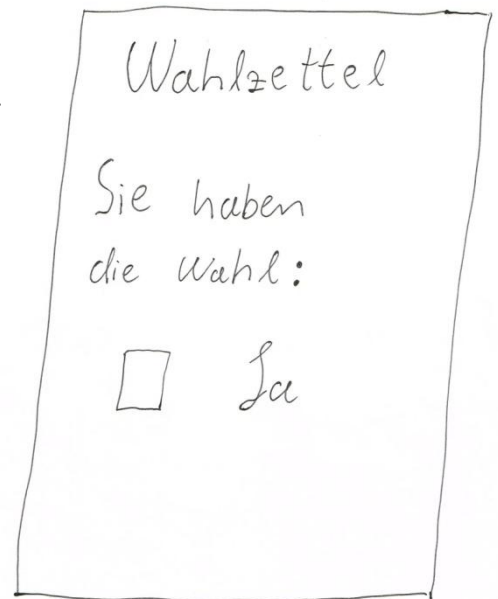 Wahlzettel
Sie haben
die Wahl:
Ja